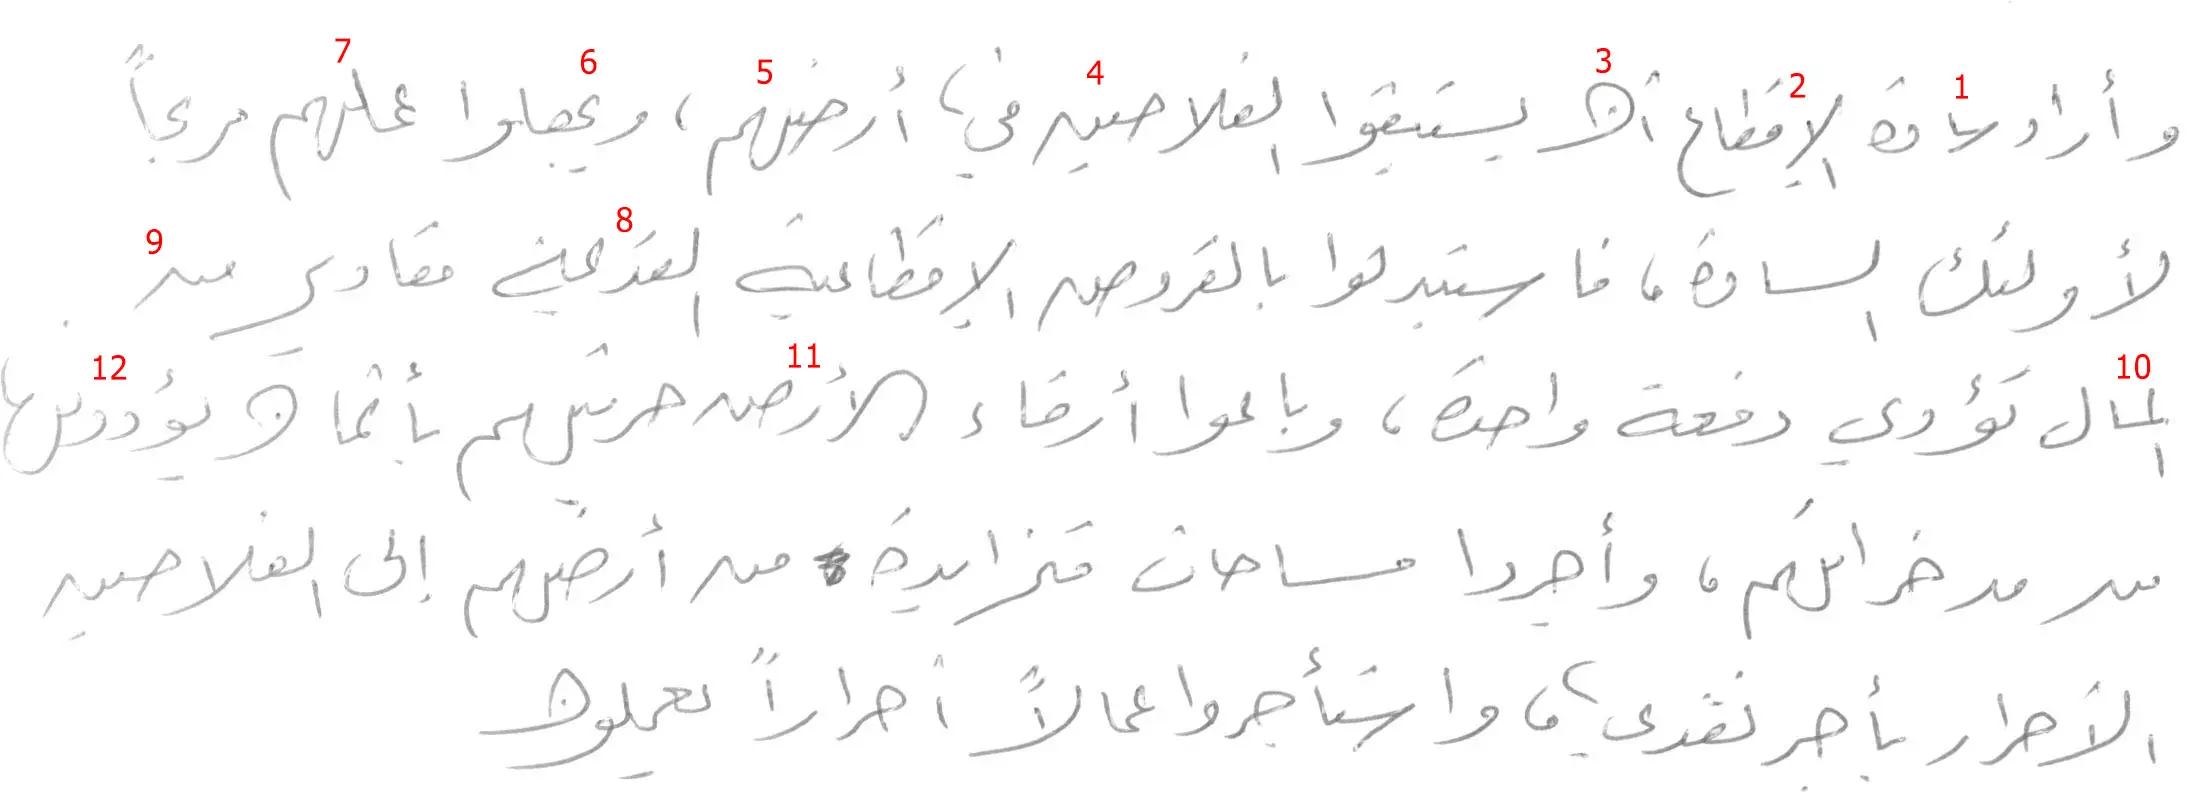 وأراد سادة الإقطاع أن يستبقوا الفلاحين في أرضهم، ويجعلوا عملهم مربحاً
لأولئك السادة، فاستبدلوا بالفروض الإقطاعية القديمة مقادير من
المال تؤدي دفعة واحدة، وباعوا أرقاء الأرض حريتهم بأثمان يؤدونها
من مدخراتهم، وأجروا مساحات متزايدة من أرضهم إلى الفلاحين
الأحرار بأجر نقدي، واستأجروا عمالاً أحراراً يعملون
1
2
3
4
5
6
7
8
9
10
11
12